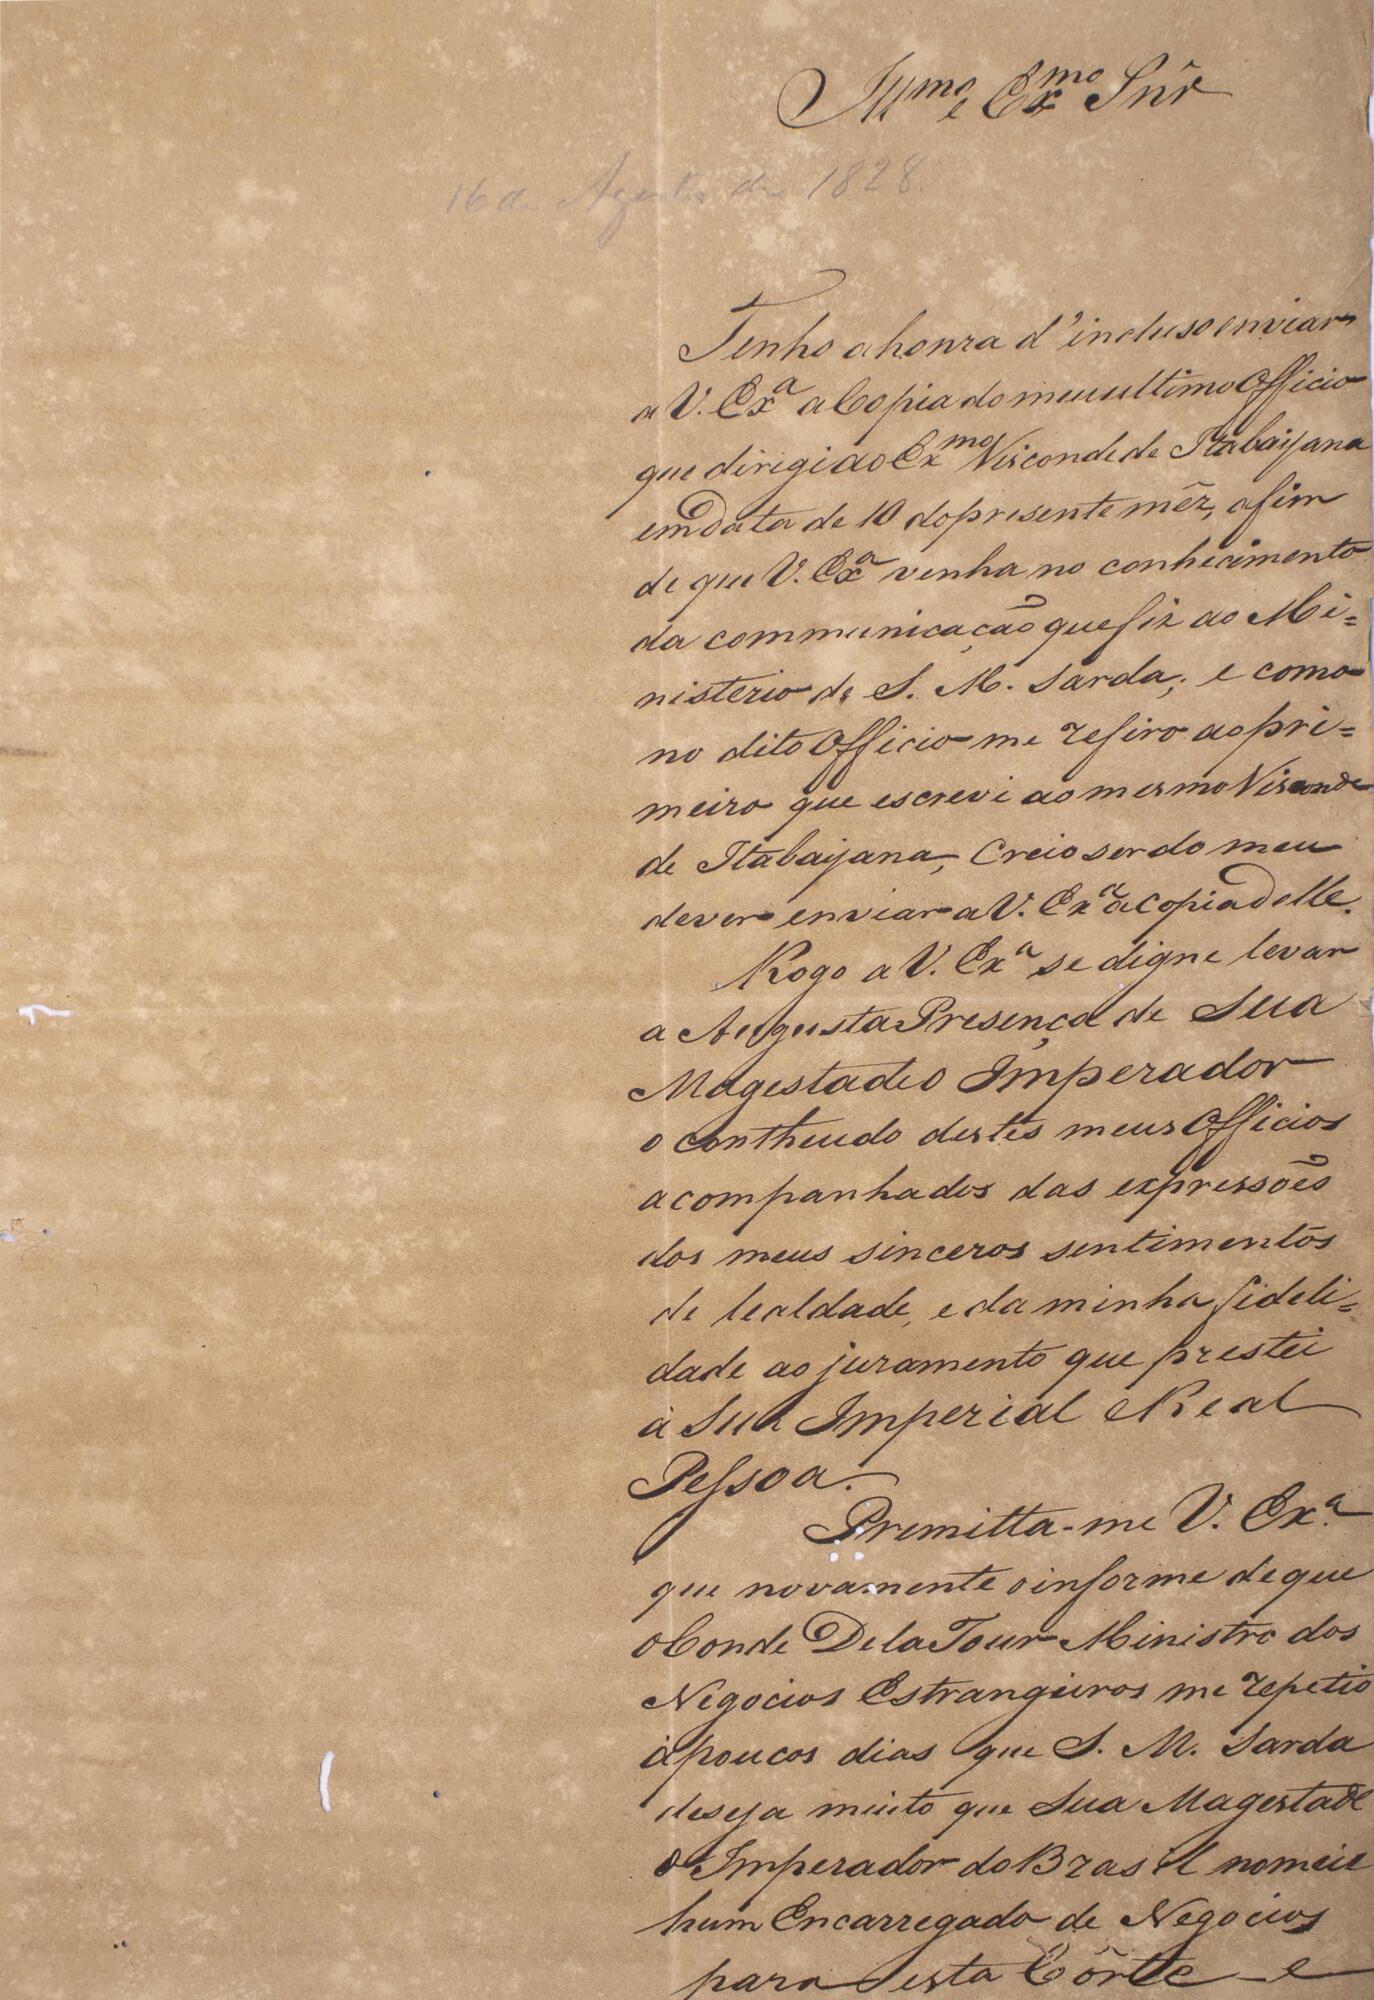 Illmo e Exmo Snr
16 de Agosto de 1828.
Tenho a honra d'incluso enviar
a V. Exa a Copia do meu ultimo Officio
que dirigi ao Exmo Visconde de Itabaijana
em data de 10 do presente mêz, afim
de que V. Exa venha no conhecimento
da communicação que fiz ao Mi=
nisterio de S. M. Sarda; e como
no dito Officio me refiro ao pri=
meiro que escrevi ao mesmo Visconde
de Itabaijana, Creio ser do meu
dever enviar a V. Exa a Copia delle.
Rogo a V. Exa se digne levar
a Augusta Presença de Sua
Magestade o Imperador
o contheudo destes meus Officios
acompanhados das expressões
dos meus sinceros sentimentos
de lealdade, e da minha fideli=
dade ao juramento que prestei
á Sua Imperial e Real
Pessoa.
Premitta-me V. Exa
que novamente o informe de que
o Conde De la Tour Ministro dos
Negocios Estrangeiros me repetio
á poucos dias que S. M. Sarda
deseja muito que Sua Magestade
o Imperador do Brasil nomeie
hum Encarregado de Negocios
para esta Côrte e